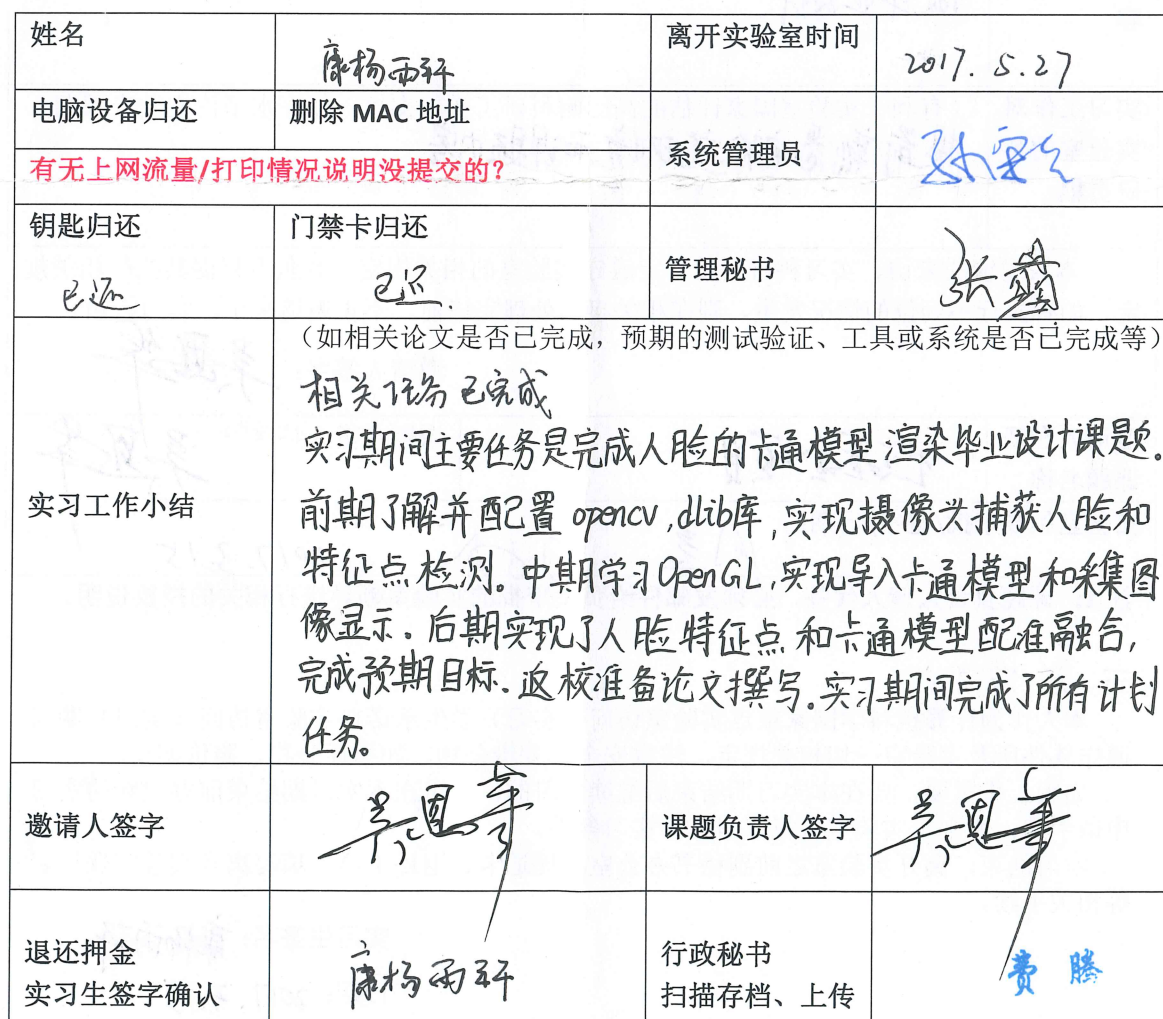 姓名 康杨雨轩 离开实验室时间 2017.5.27
电脑设备归还 删除 MAC 地址
系统管理员
有无上网流量/打印情况说明没提交的?
钥匙归还 门禁卡归还
已还 已还. 管理秘书
(如相关论文是否已完成,预期的测试验证、工具或系统是否已完成等)
相关任务已完成
实习期间主要任务是完成人脸的卡通模型渲染毕业设计课题.
实习工作小结
前期了解并配置 opencv,dlib库,实现摄像头捕获人脸和
特征点检测.中期学习OpenGL,实现导入卡通模型和采集图
像显示.后期实现了人脸特征点和卡通模型配准融合,
完成预期目标.返校准备论文撰写.实习期间完成了所有计划
任务。
邀请人签字 吴恩华 课题负责人签字 吴恩华
退还押金 行政秘书
康杨雨轩 费腾
实习生签字确认 扫描存档、上传